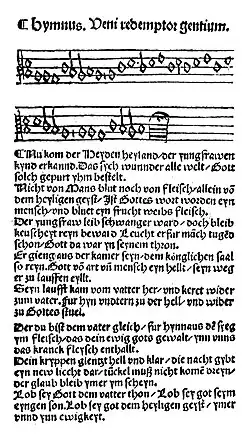 Hymnus. Veni redemptor gentium.
Nu kom der Heyden heyland / der yungfrawen
kynd erkannd. Das sych wunnder alle welt / Gott
solch gepurt yhm bestelt.
Nicht von Mans blut noch von fleisch / allein von
dem heyligen geyst / Ist Gottes wort worden eyn
mensch / vnd bluet eyn frucht weibs fleisch.
Der yungfraw leib schwanger ward / doch bleib
keuscheyt reyn beward Leucht erfur manch tugend
schon / Gott da war yn seynem thron.
Er gieng aus der kamer seyn / dem könglichen saal
so reyn. Gott von art vnd mensch eyn hellt / seyn weg
er zu lauffen eyllt.
Seyn laufft kam vom vatter her / vnd keret wider
zum vater. Fur hyn vndtern zu der hell / vnd wider
zu Gottes stuel.
Der du bist dem vater gleich / fur hynnaus den sieg
ym fleisch / das dein ewig gots gewalt / ynn vnns
das kranck fleysch enthallt.
Dein kryppen glentzt hell vnd klar / die nacht gybt
eyn new liecht dar / tunckel muß nicht komen dreyn /
der glaub bleib ymer ym scheyn.
Lob sey Gott dem vatter thon / Lob sey got seym
eyngen son. Lob sey got dem heyligen geyst / ymer
vnnd ynn ewigkeyt.